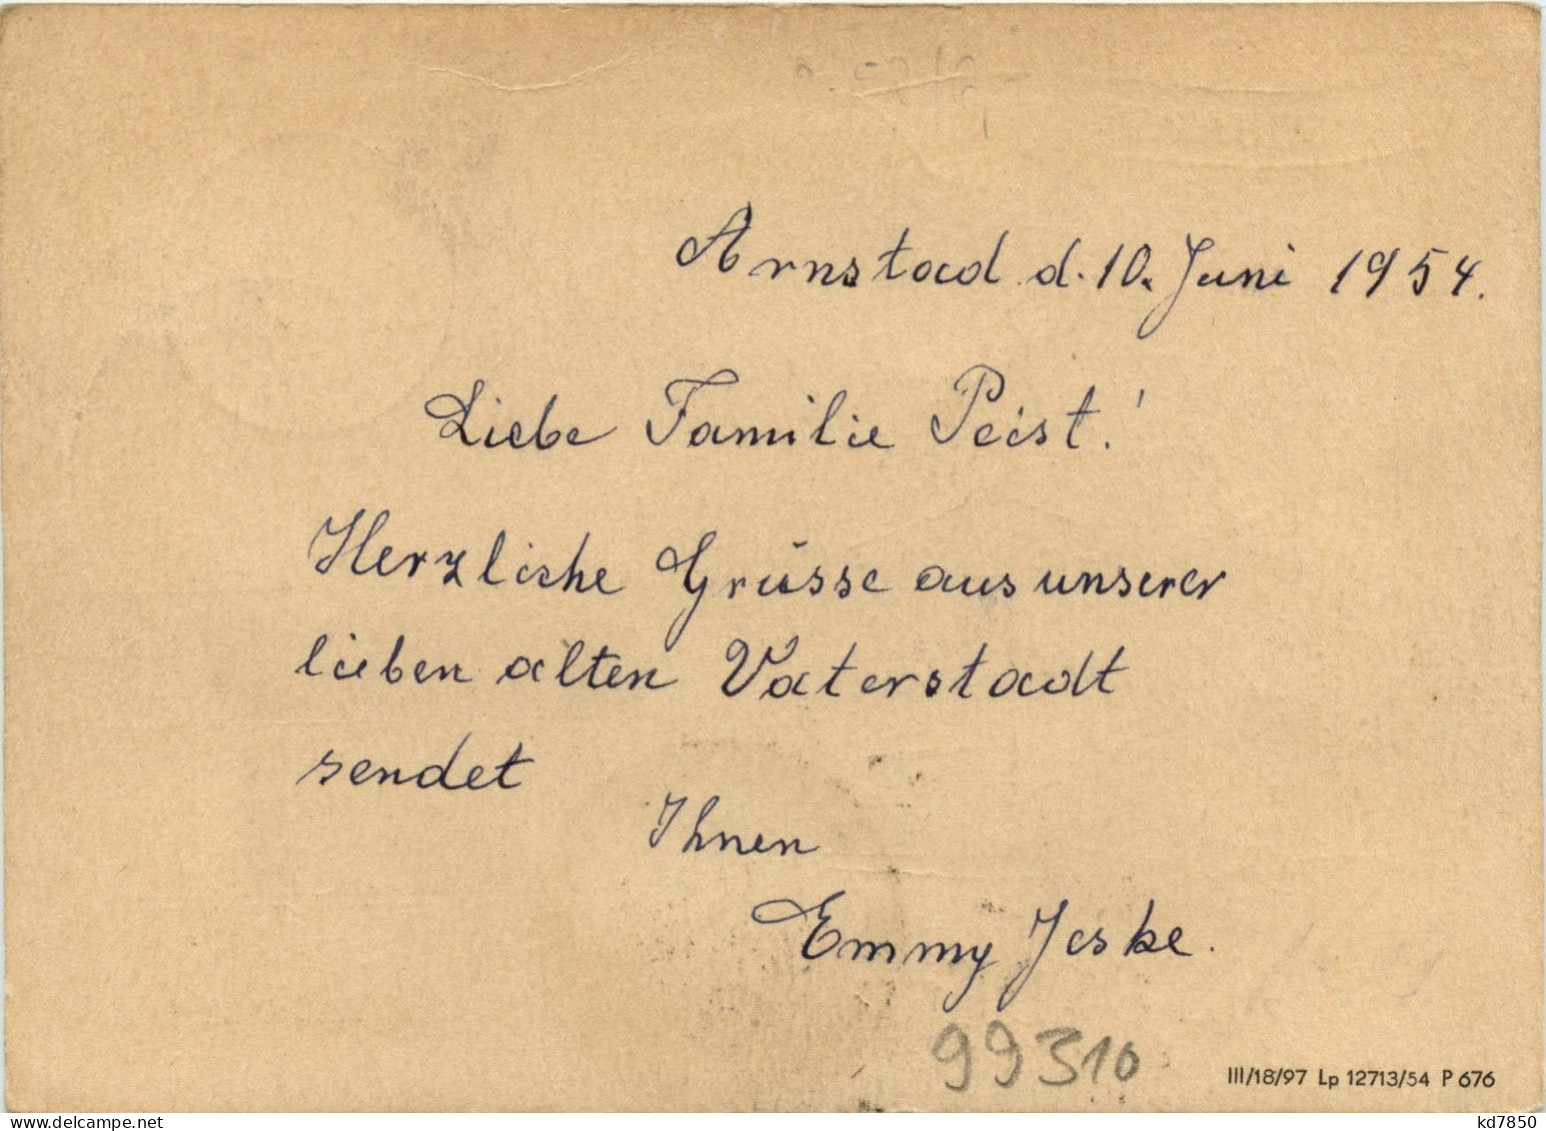 Arnstadt d. 10. Juni 1954.
Liebe Familie Peist!
Herzliche Grüsse aus unserer
lieben alten Vaterstadt
sendet
Ihnen
Emmy Jeske.
99310
III/18/97 Lp 12713/54 P 676
kd7850